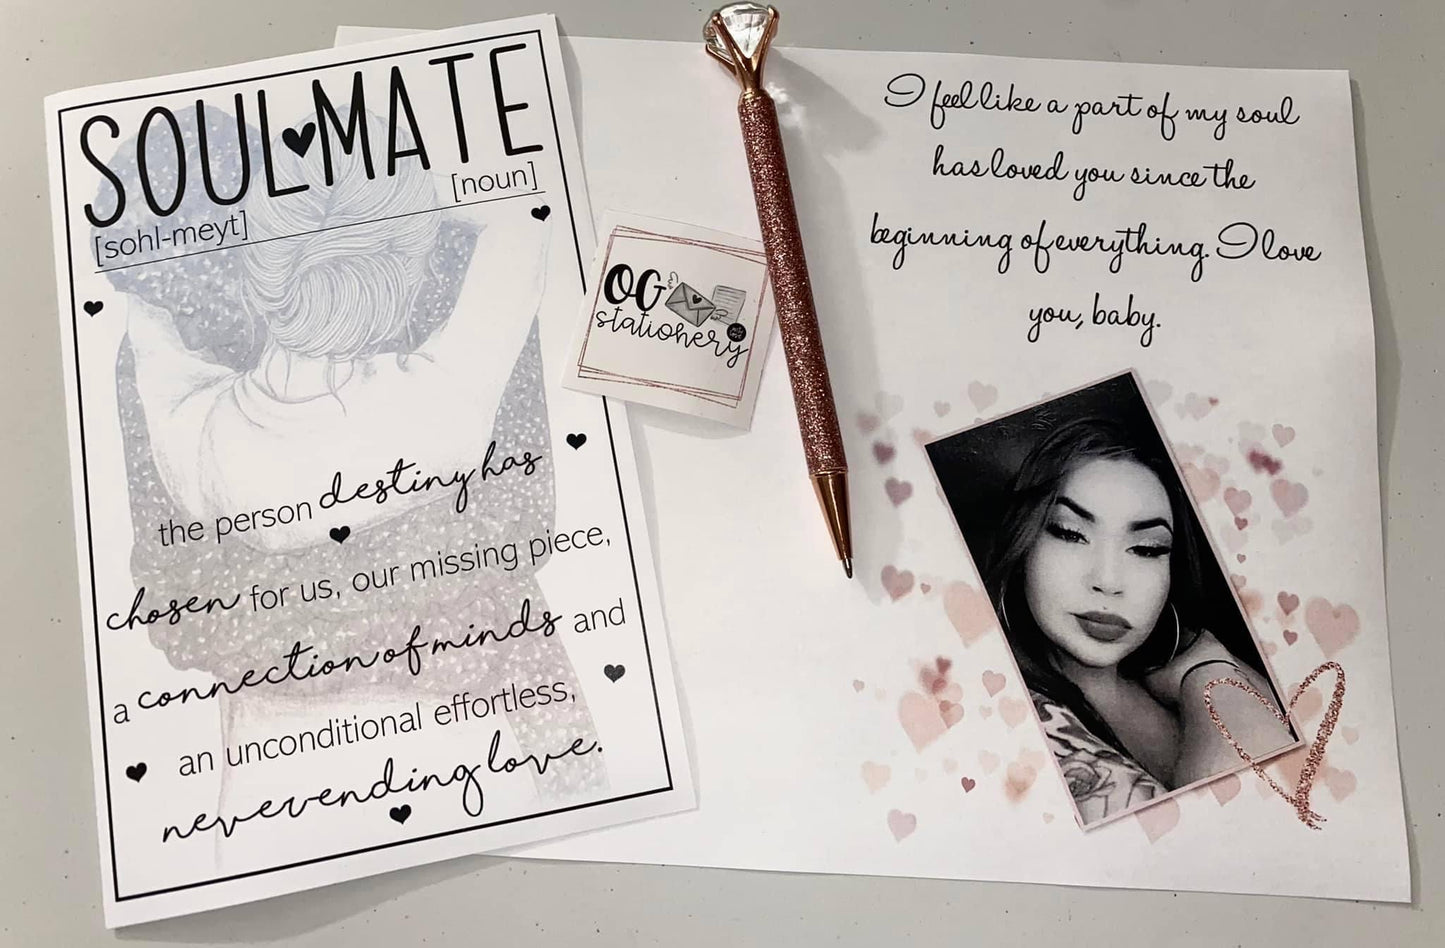 SOUL♥MATE
[noun]
[sohl-meyt]
the person destiny has
chosen for us, our missing piece,
a connection of minds and
an unconditional effortless,
neverending love.
OG
stationery
I feel like a part of my soul
has loved you since the
beginning of everything. I love
you, baby.